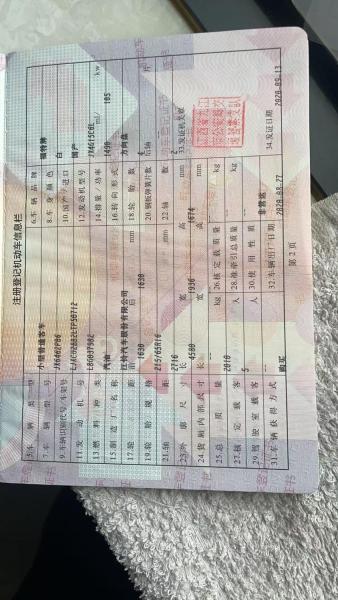 注册登记机动车信息栏
5.车辆类型 小型普通客车 6.车辆品牌 福特牌
7.车辆型号 8.车身颜色 白
9.车辆识别代号/车架号 10.国产/进口 国产
11.发动机号 12.发动机型号
13.燃料种类 汽油 14.排量/功率 1490 ml/ 105 kw
15.制造厂名称 江铃汽车股份有限公司 16.转向形式 方向盘
17.轮距 前 1630 后 1630 mm 18.轮胎数 4
19.轮胎规格 20.钢板弹簧片数 后轴 片
21.轴距 2716 mm 22.轴数 2
23.外廓尺寸 长 4580 宽 1936 高 1674 mm 33.发证机关章
24.货厢内部尺寸 长 宽 高 mm
25.总质量 2010 kg 26.核定载质量 kg
27.核定载客 5 人 28.准牵引总质量 kg
29.驾驶室载客 人 30.使用性质 非营运
31.车辆获得方式 购买 32.车辆出厂日期 2020-08-27 34.发证日期 2020-09-13
第 2 页